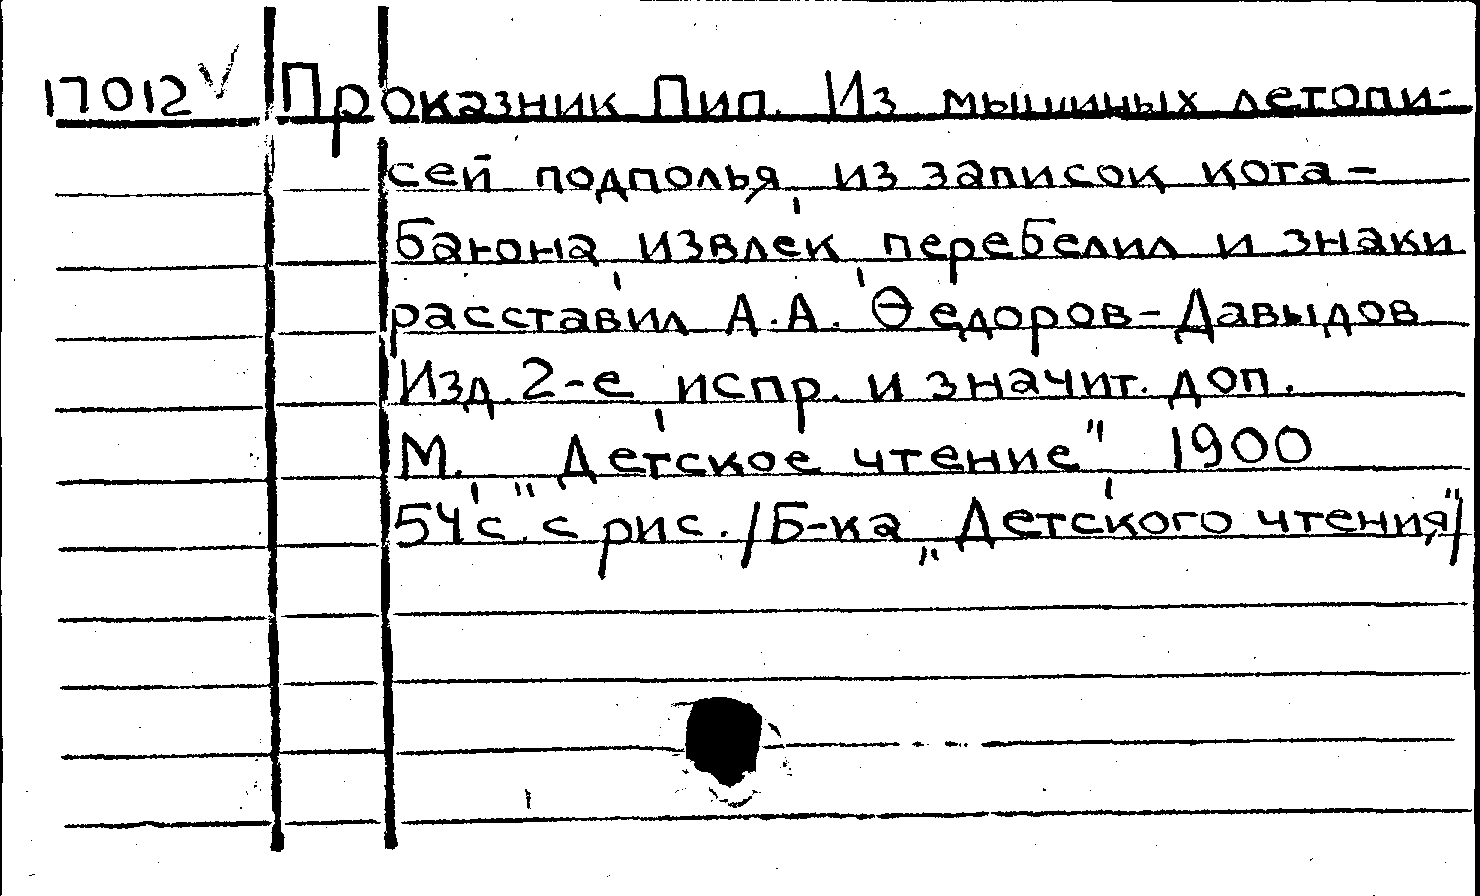 17012 √ Проказник Пип. Из мышиных летопи-
сей подполья, из записок кота-
барона, извлек, перебелил и знаки
расставил А.А. Ѳедоров-Давыдов
Изд. 2-е, испр. и значит. доп.
М., „Детское чтение", 1900
54 с. с рис. /Б-ка „Детского чтения"/